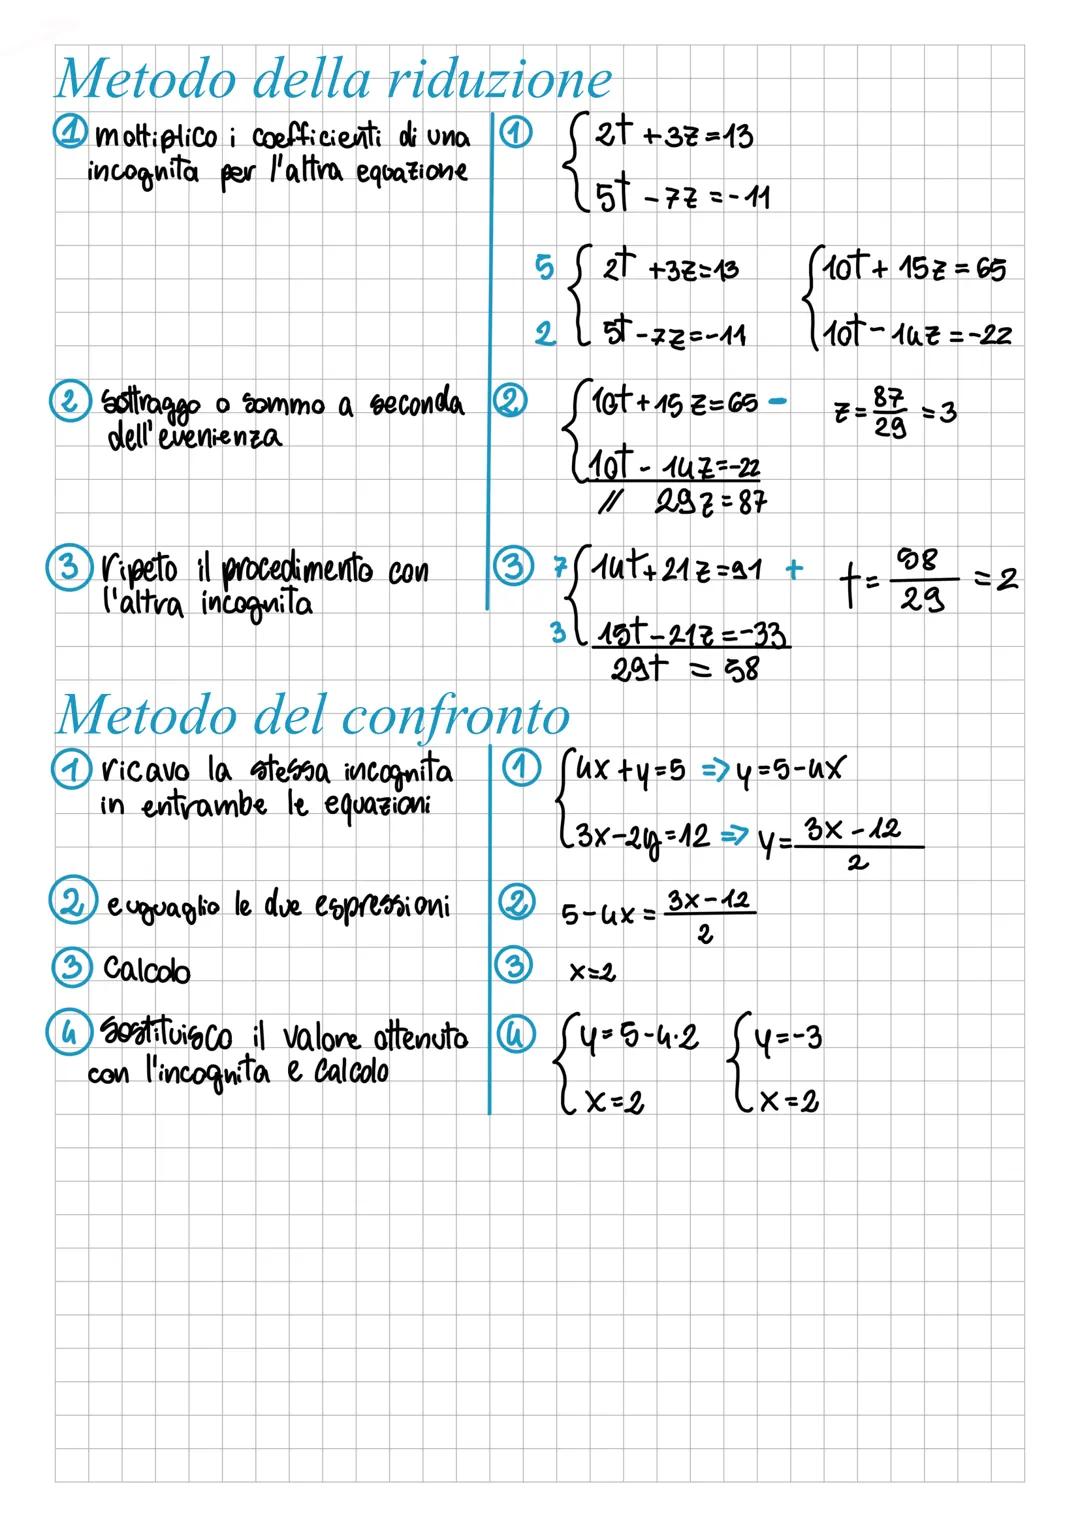 Metodo della riduzione
① moltiplico i coefficienti di una
incognita per l'altra equazione
① { 2t + 3z = 13
5t - 7z = -11
5 { 2t + 3z = 13 { 10t + 15z = 65
2 5t - 7z = -11 10t - 14z = -22
② sottraggo o sommo a seconda
dell'evenienza
② { 10t + 15z = 65 - z = 87/29 = 3
10t - 14z = -22
// 29z = 87
③ ripeto il procedimento con
l'altra incognita
③ 7 { 14t + 21z = 91 + t = 58/29 = 2
3 15t - 21z = -33
29t = 58
Metodo del confronto
① ricavo la stessa incognita
in entrambe le equazioni
① { 4x + y = 5 => y = 5 - 4x
3x - 2y = 12 => y = 3x - 12/2
② euguaglio le due espressioni
② 5 - 4x = 3x - 12/2
③ Calcolo
③ x = 2
④ Sostituisco il valore ottenuto
con l'incognita e calcolo
④ { y = 5 - 4·2 { y = -3
x = 2 x = 2